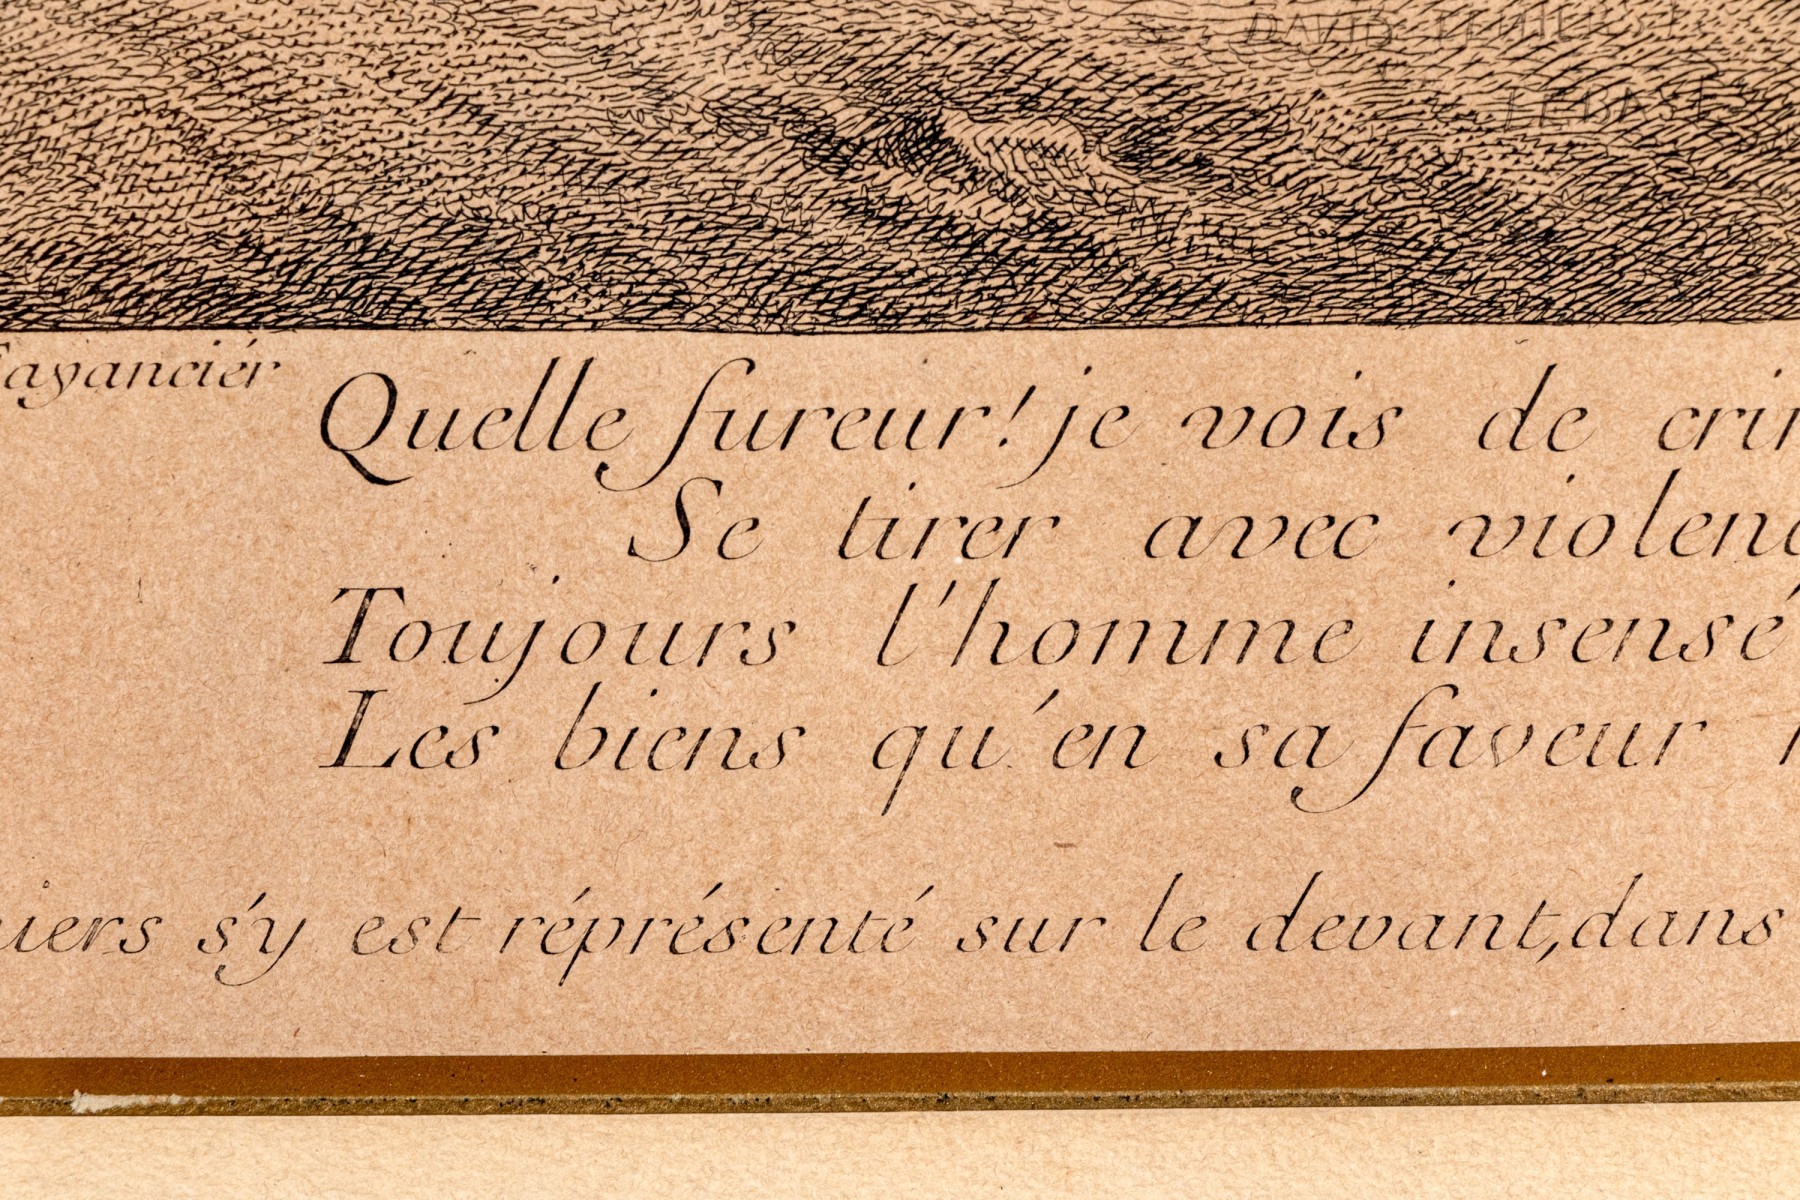 DAVID TENIERS
ayanciér
Quelle fureur! je vois de cri
Se tirer avec violenc
Toujours l'homme insensé
Les biens qu'en sa faveur
niers s'y est réprésenté sur le devant, dans